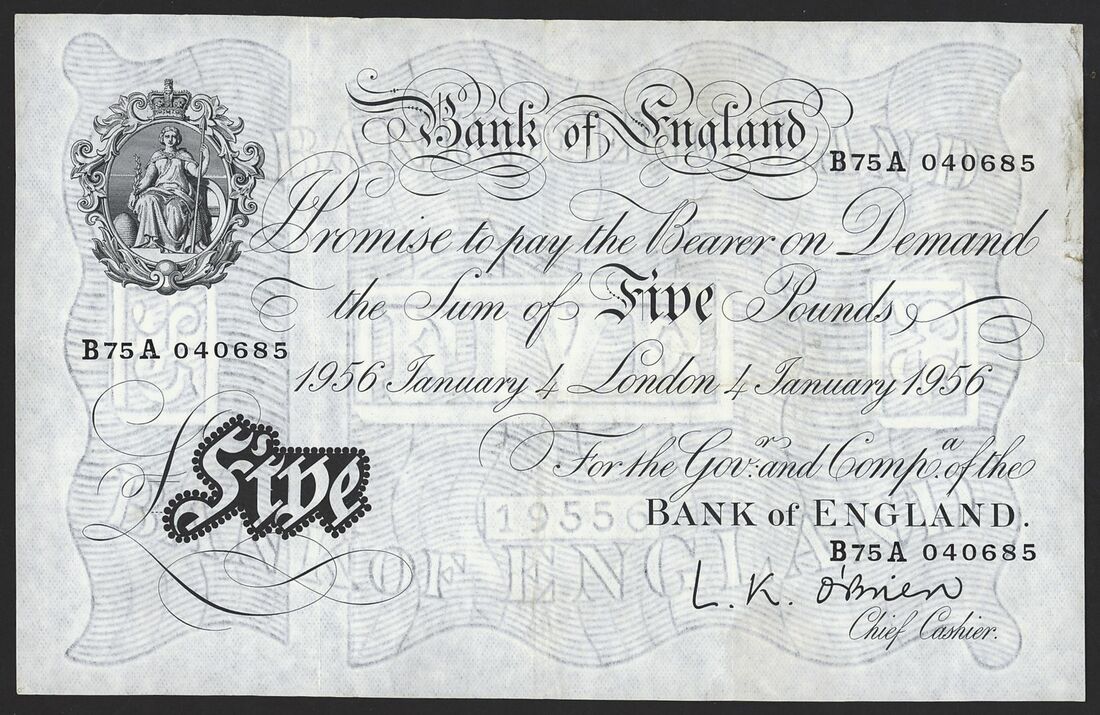 Bank of England
B75A 040685
I Promise to pay the Bearer on Demand
the Sum of Five Pounds
B75A 040685
1956 January 4 London 4 January 1956
£Five
For the Govr. and Compa. of the
BANK of ENGLAND.
B75A 040685
L. K. O'Brien
Chief Cashier.
BANK OF ENGLAND
FIVE
BANK OF ENGLAND